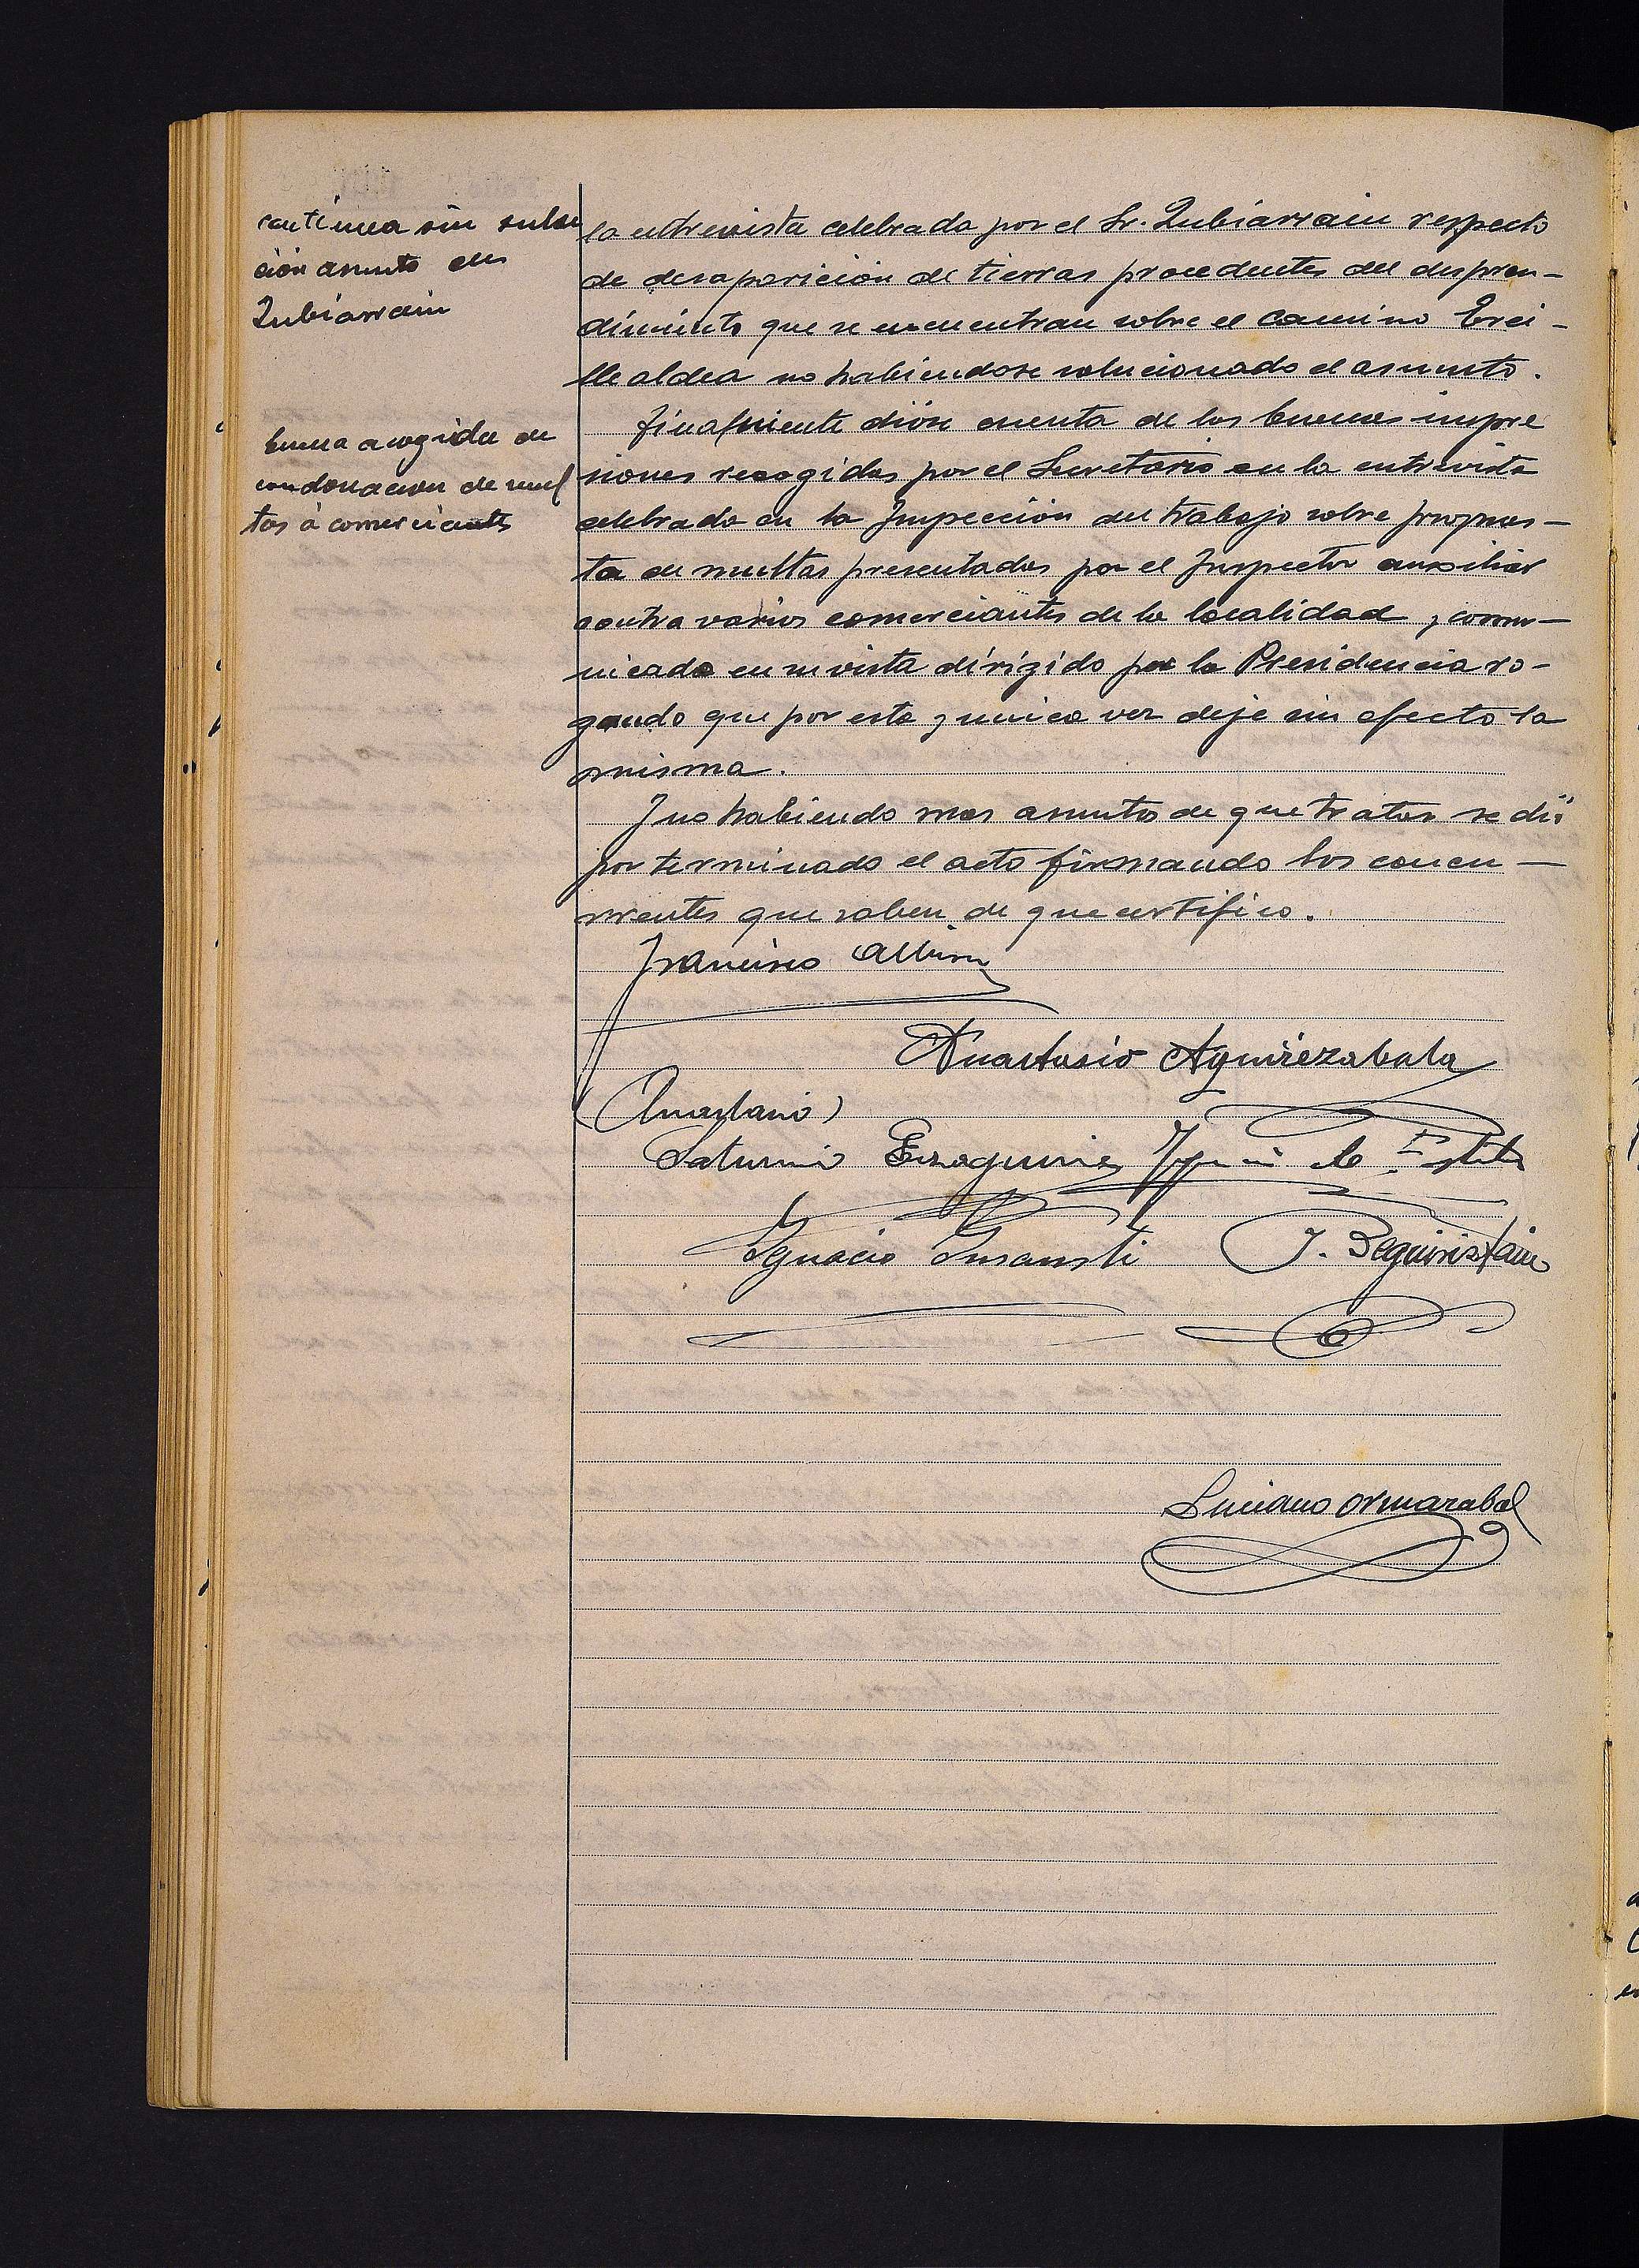 continua sin solu
ción asunto de
Zubiarrain
la entrevista celebrada por el Sr. Zubiarrain respecto
de desaparición de tierras procedentes del despren-
dimiento que se encuentran sobre el camino Erei-
lle aldea no habiendose solucionado el asunto.
buena acogida de
condonacion de mul
tas á comerciantes
Finalmente dión cuenta de las buenas impre
siones recogidas por el Secretario en la entrevista
celebrada en la Inspección del trabajo sobre propues-
ta de multas presentadas por el Inspector auxiliar
contra varios comerciantes de la localidad, y comu-
nicado en su vista dirigido por la Presidencia ro-
gando que por esta y unica vez deje sin efecto la
misma.
Y no habiendo mas asuntos de que tratar se dió
por terminado el acto firmando los concu-
rrentes que saben de que certifico.
Francisco
Anastasio Aguirrezabala
(Anastasio)
Saturnino Eizaguirre
Ignacio Insausti J. Beguiristain
Luciano Ormazabal